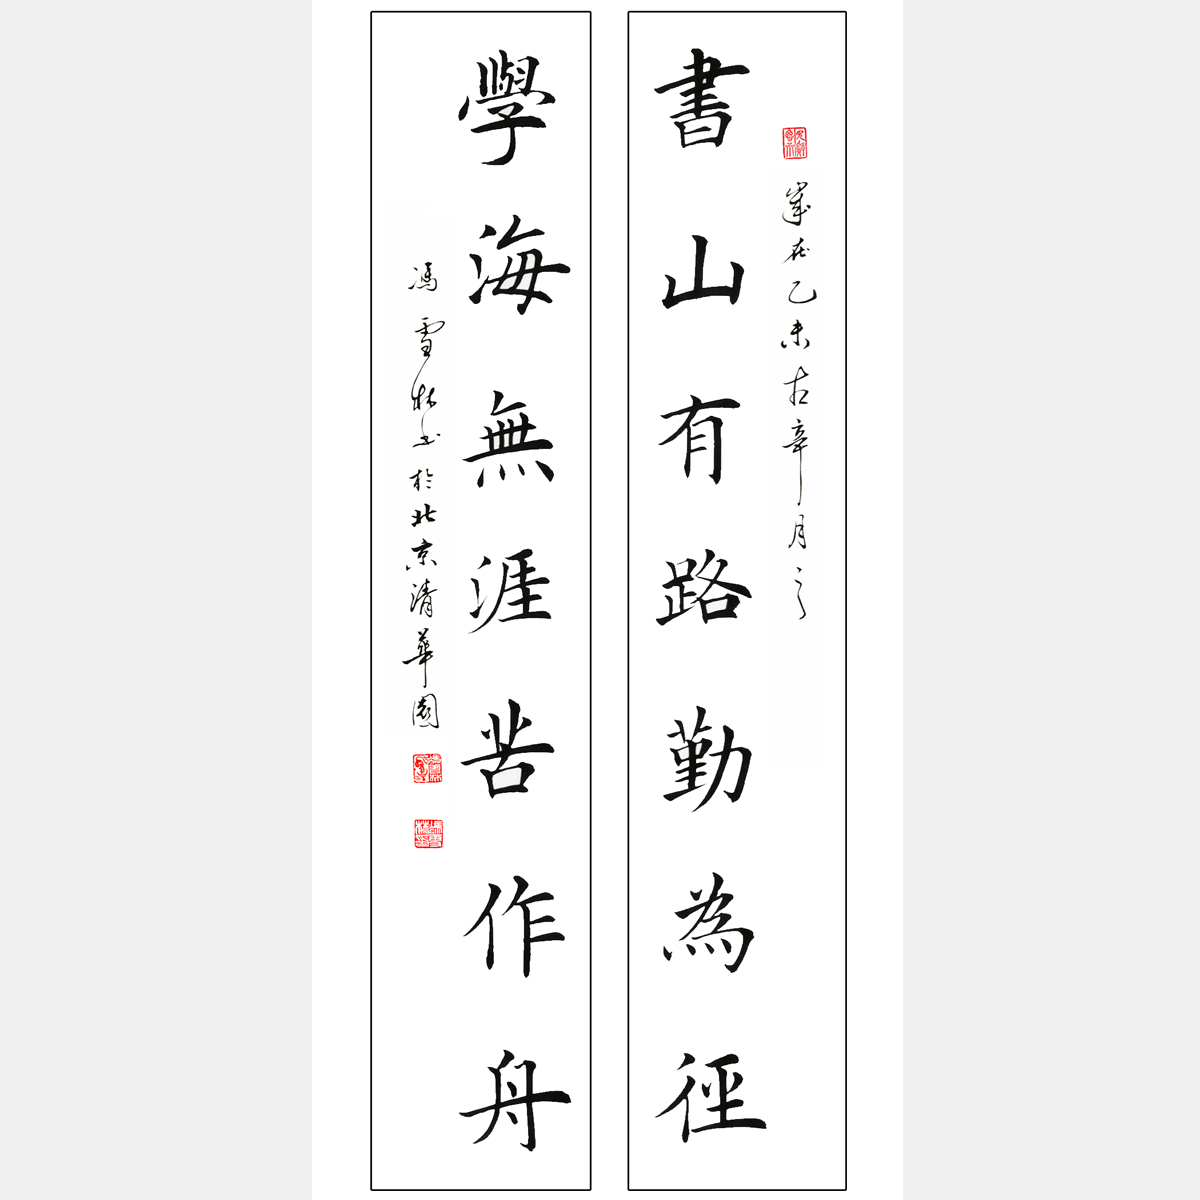 書山有路勤為徑
歲在乙未古辛月之
學海無涯苦作舟
馮雪林書於北京清華園